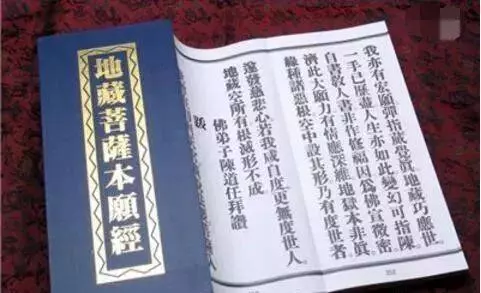 地藏菩薩本願經
我亦有宏願彈指登眞地藏巧應世
一手已歷塵人生亦如此變幻可指陳
自書敎人書非作修福因爲佛宣微密
濟此大願力有情應深維地獄本非眞
緣種諸惡根空中設其形乃有度世者
遂發慈悲心若我咸自度更無度世人
地藏空所有根滅形不成
佛弟子陳道任拜讚
跋